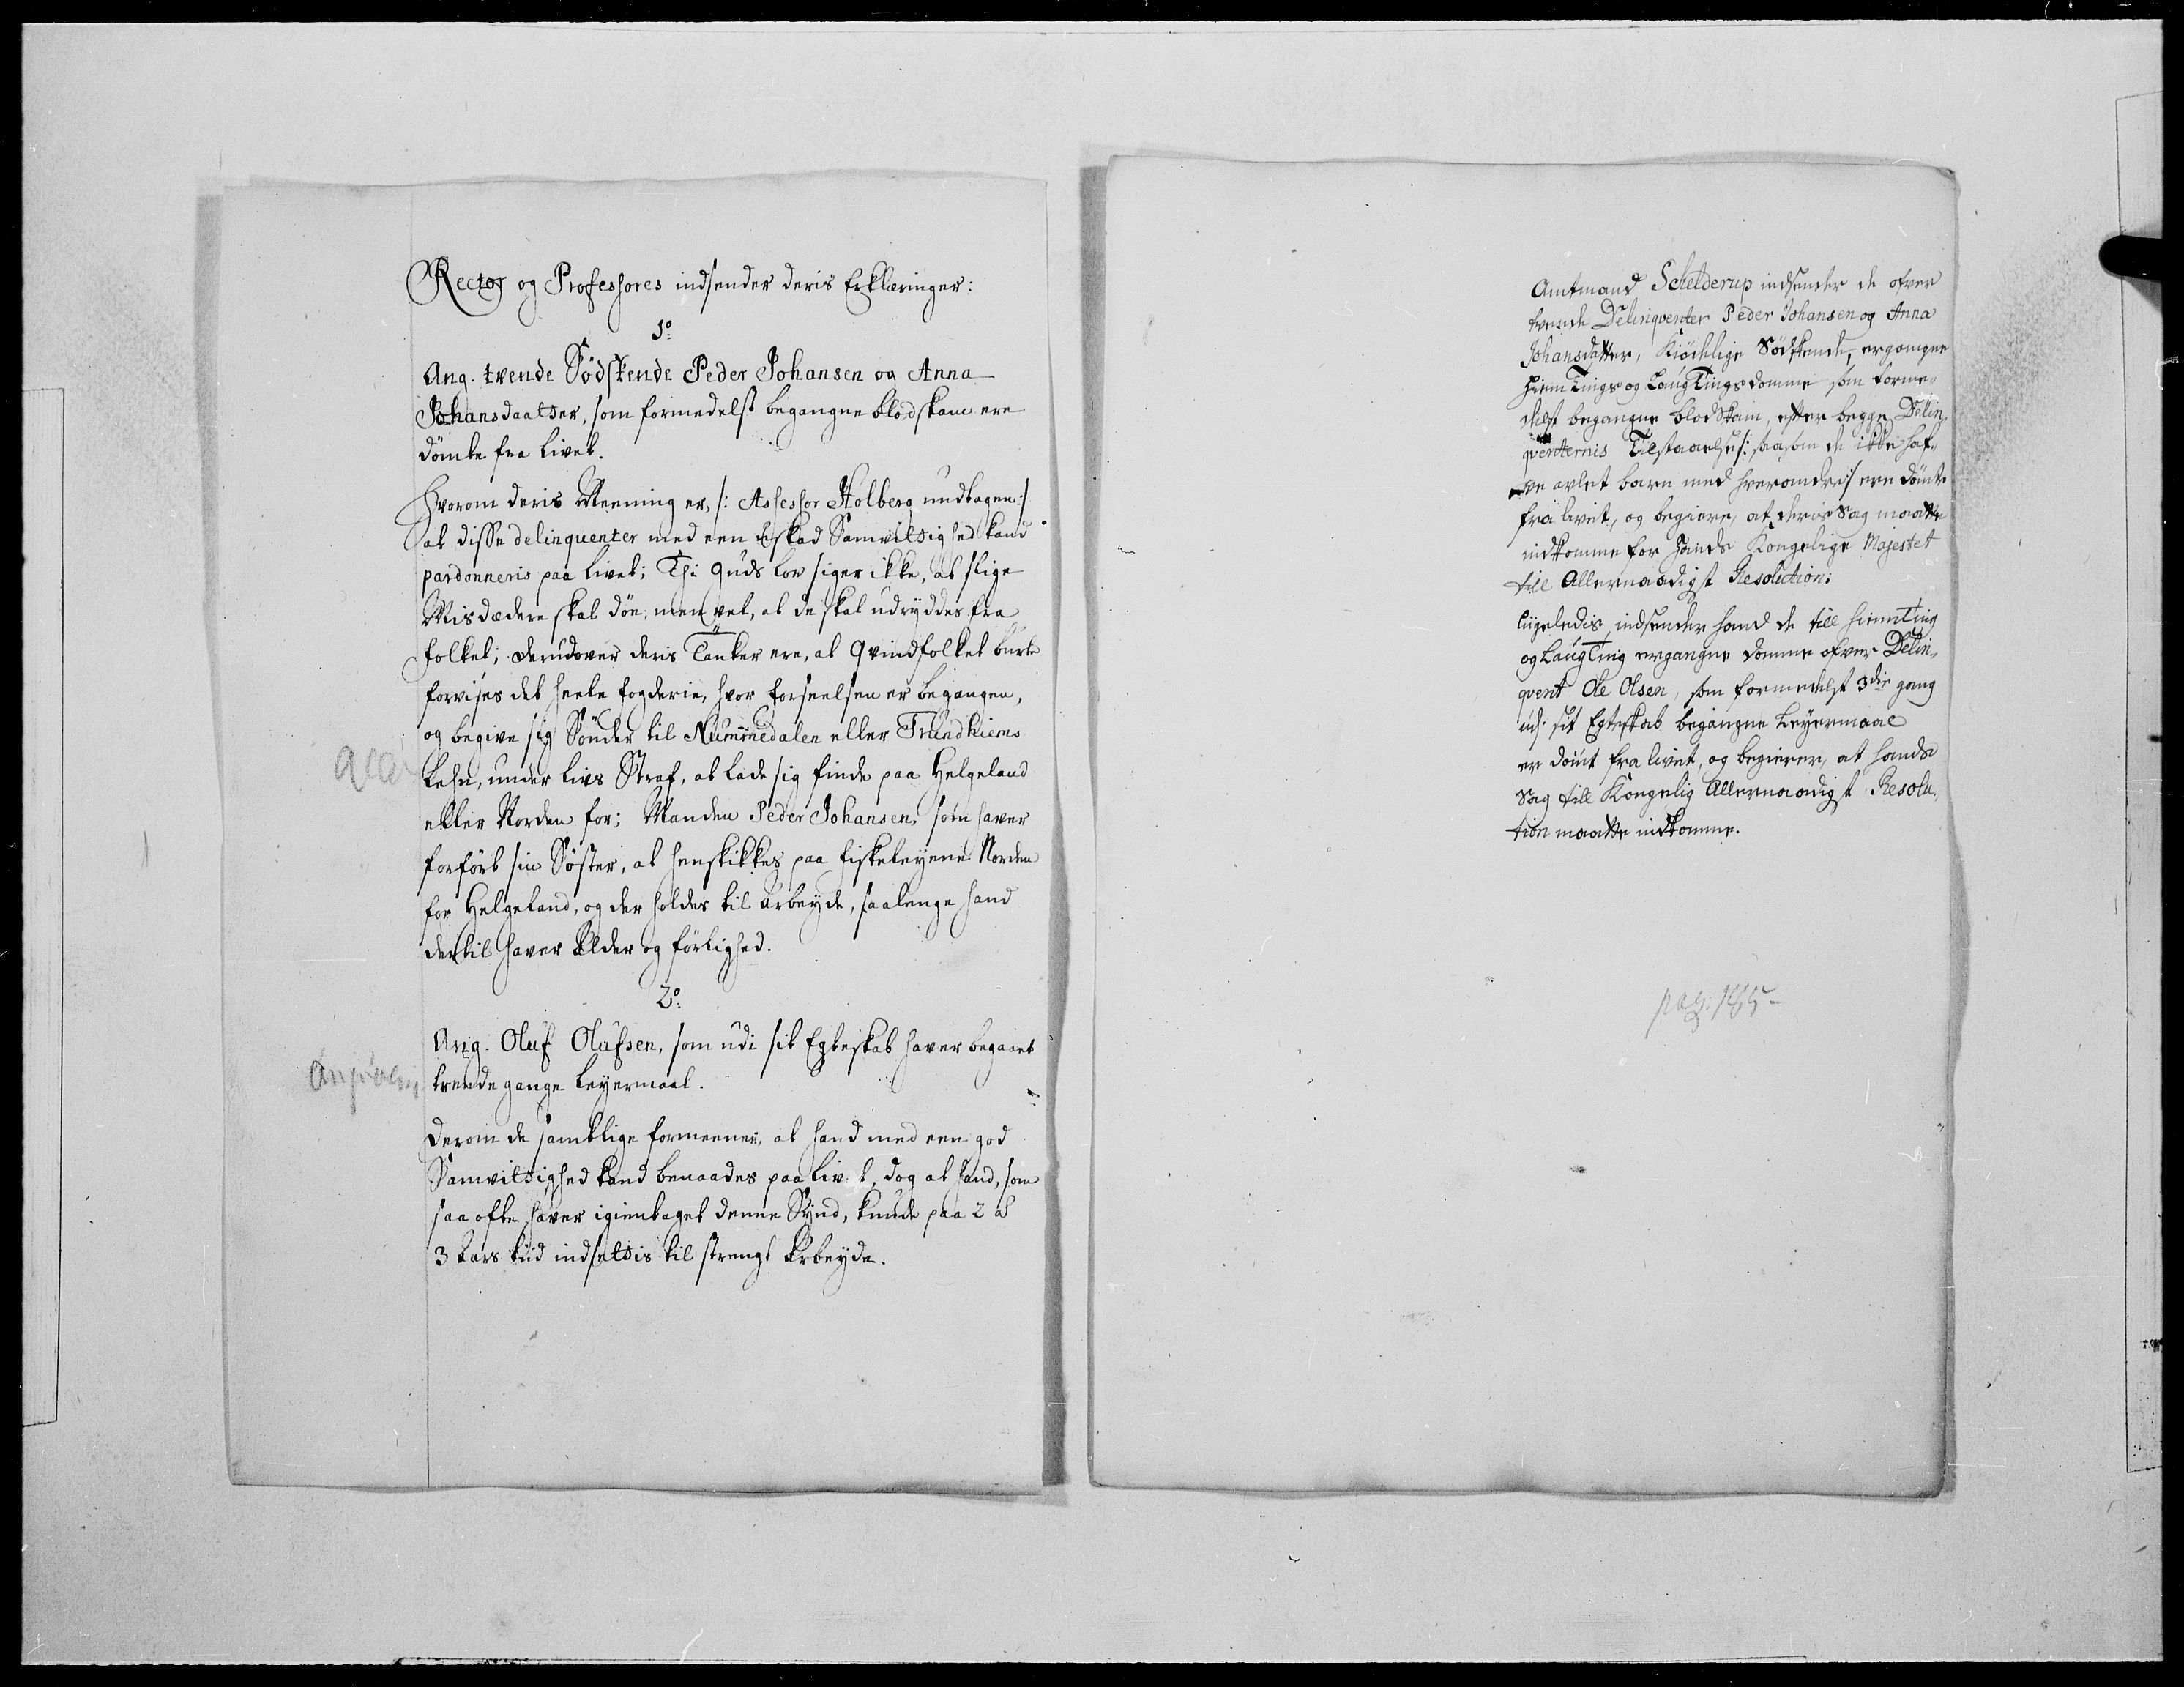 Rector og Professores indsender deris Erklæringer:
1o:
Ang. tvende Södskende Peder Johansen og Anna
Johansdaatter, som formedelst begangne blodskam ere
dömte fra Livet.
Hvorom deris Meening er, /: Assessor Holberg undtagen :/
at disse delinquenter med een Samvittighed kand
pardonneris paa Livet; Thi Guds Lov siger ikke, at slige
Misdædere skal döe; men vel, at de skal udryddes fra
folket; derudover deris Tanker ere, at Qvindfolket burte
forvises det heele fogderie, hvor forseelsen er begangen,
og begive sig Sönder til Nummedalen eller Trundhiems
Lehn, under Livs Straf, at lade sig finde paa Helgeland
eller Norden for; Manden Peder Johansen, som haver
forfört sin Söster, at henskikkes paa fiskeleyene Norden
for Helgeland, og der holdes til Arbeyde, saalenge hand
dertil haver Alder og förlighed.
2o:
Ang. Oluf Olufsen, som udi sit Egteskab haver begaaet
trende gange Leyermaal.
Derom de samtlige formeener, at hand med een god
Samvittighed kand benaades paa Livet, dog at hand, som
saa ofte haver igientaget denne Synd, kunde paa 2 a
3 Aars tiid indsettis til strengt Arbeyde.
Amtmand Schelderup indsender de ofver
tvende Delinqventer Peder Johansen og Anna
Johansdatter, Kiödelige Södskende, ergangne
HiemTings og LaugTings domme som forme-
delst begangne blodskam, efter begge Delin-
qventernis Tilstaaelse /: saasom de ikke haf-
ve avlet barn med hverandre :/ ere dömte
fra livet, og begiere, at deris Sag maatte
indkomme for Hands Kongelige Majestet
till Allernaadigst Resolution;
Liigeledis indsender hand de till HiemTing
og LaugTing ergangne domme ofver Delin-
qvent Ole Olsen, som formedelst 3die gang
udi sit Egteskab begangne Leyermaal
er dömt fra livet, og begierer, at hands
Sag till Kongelig Allernaadigst Resolu-
tion maatte indkomme.